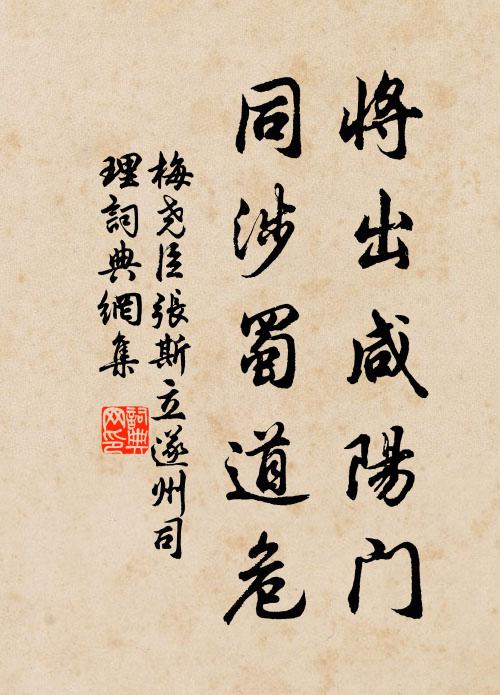 将出咸陽门
同涉蜀道危
梅尧臣張斯立遂州司
理詞典網集
詞典网印